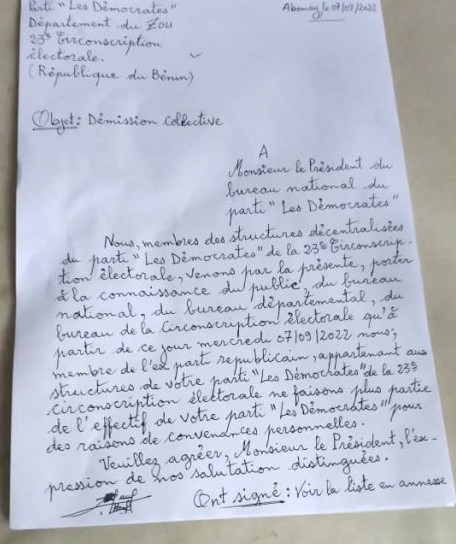 Parti "Les Démocrates"
Abomey, le 07/09/2022
Département du Zou
23è Circonscription
électorale.
(République du Bénin)
Objet: Démission Collective
A
Monsieur le Président du
bureau national du
parti "Les Démocrates"
Nous, membres des structures décentralisées
du parti "Les Démocrates" de la 23è Circonscrip-
tion électorale, venons par la présente, porter
à la connaissance du public, du bureau
national, du bureau départemental, du
bureau de la Circonscription électorale qu'à
partir de ce jour mercredi 07/09/2022 nous,
membre de l'ex parti republicain, appartenant aux
structures de votre parti "Les Démocrates" de la 23è
circonscription électorale ne faisons plus partie
de l'effectif de votre parti "Les Démocrates" pour
des raisons de convenances personnelles.
Veuillez agréer, Monsieur le Président, l'ex-
pression de nos salutation distinguées.
Ont signé: Voir la liste en annexe